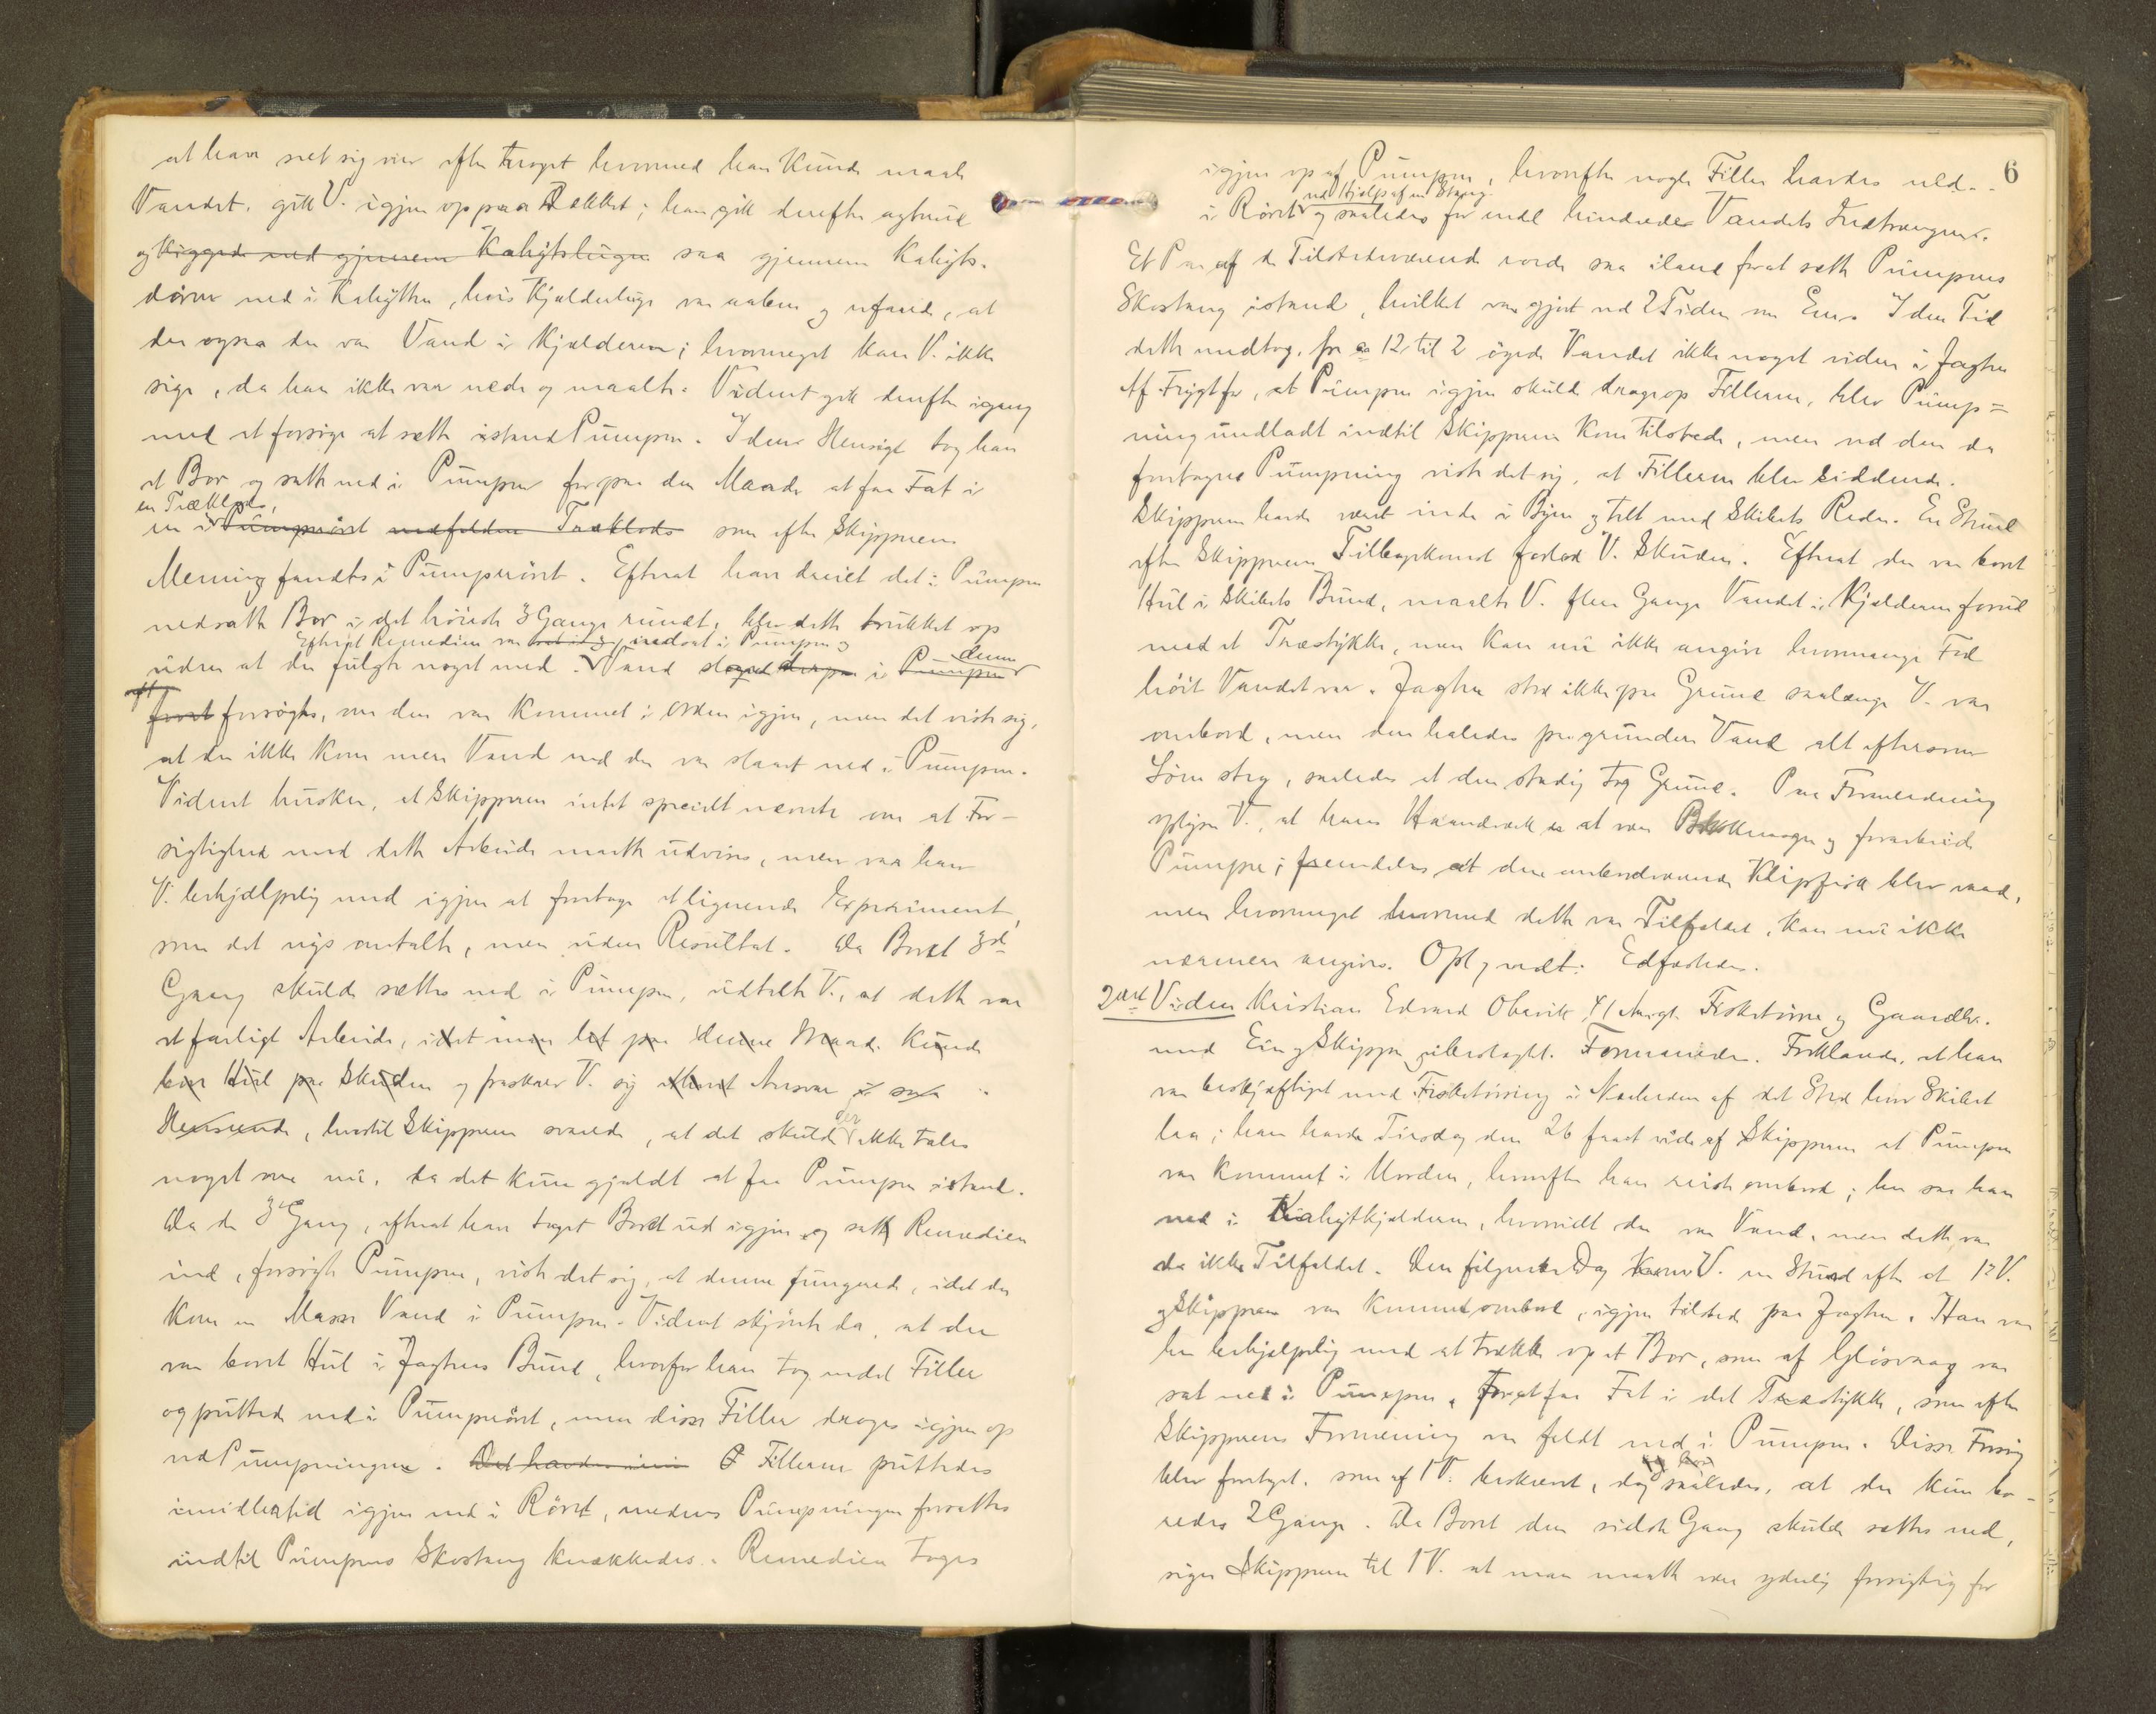 at have set sig om efter noget hvormed han kunde maale
Vandet, gik V. igjen op paa Dækket; han gik derefter agterud
og kiggede ned gjennem Kahytslugen saa gjennem Kahyts-
døren ned i Kahytten, hvis Kjælderluge var aaben og erfarede, at
der ogsaa der var Vand i Kjælderen; hvormeget kan V. ikke
sige, da han ikke var nede og maalte. Vidnet gik derefter igang
med at forsøge at sætte istand Pumpen. I den Hensigt tog han
et Bor og satte ned i Pumpen for paa den Maade at faa Fat i
en Træklods,
en i Pumperøret nedfalden Træklods som efter Skipperens
Mening fandtes i Pumperøret. Efterat han havde dreiet det i Pumpen
nedsatte Bor i det høieste 3 Gange rundt, blev dette trukket op
Efterat Remedien var nedsat i Pumpen og
uden at der fulgte noget med. Vand sloges i Pumpen denne
forsøgtes, om den var kommet i Orden igjen, men det viste sig,
at der ikke kom mere Vand end der var slaaet ned i Pumpen.
Vidnet husker, at Skipperen intet specielt nævnte om at For-
sigtighed med dette Arbeide maatte udvises, men var han
V. behjælpelig med igjen at foretage et lignende Experiment,
som det nys omtalte, men uden Resultat. Da Boret 3die
Gang skulde sættes ned i Pumpen, udtalte V., at dette var
et farligt Arbeide, idet man let paa denne Maade kunde
bore Hul paa Skuden og fraskrev V. sig ethvert Ansvar i saa
Henseende, hvortil Skipperen svarede, at det skulde der ikke tales
noget om nu, da det kun gjaldt at faa Pumpen istand.
Da de 3die Gang, efterat have taget Boret ud igjen og satt Remedien
ind, forsøgte Pumpen, viste det sig, at denne fungerede, idet der
kom en Masse Vand i Pumpen. Vidnet skjønte da, at der
var boret Hul i Jagtens Bund, hvorfor han tog endel Filler
og puttede ned i Pumperøret, men disse Filler droges igjen op
ved Pumpningen. Det havde Fillerne puttedes
imidlertid igjen ned i Røret, medens Pumpningen fortsattes
indtil Pumpens Skostang knækkedes. Remedien toges
6
igjen op af Pumpen, hvorefter nogle Filler havdes ned
ved Hjælp af en Stang
i Røret og saaledes for endel hindrede Vandets Indtrængen.
Et Par af de Tilstedeværende roede saa iland forat sætte Pumpens
Skostang istand, hvilket var gjort ved 2 Tiden om Em. I den Tid
dette medtog, fra ca 12 til 2 øgede Vandet ikke noget videre i Jagten
Af Frygt for, at Pumpen igjen skulde drage op Fillerne, blev Pump-
ning undladt indtil Skipperen kom tilstede, men ved den da
foretagne Pumpning viste det sig, at Fillerne blev siddende.
Skipperen havde været inde i Byen og talt med Skibets Reder. En Stund
efter Skipperens Tilbagekomst forlod V. Skuden. Efterat der var boret
Hul i Skibets Bund, maalte V. flere Gange Vandet i Kjælderen forud
med et Træstykke, men kan nu ikke angive hvormange Fod
høit Vandet var. Jagten stod ikke paa Grund saalænge V. var
ombord, men den haledes paa grundere Vand alt eftersom
Søen steg, saaledes at den stadig tog Grund. Paa Foranledning
oplyser V., at hans Haandværk er at være Blokkemager og forarbeide
Pumper; fremdeles at den ombordværende Klipfisk blev vaad,
men hvormeget hvormed dette var Tilfældet, kan nu ikke
nærmere angives. Opl. vedt. Edfæstedes.
2det Vidne Kristian Edvard 41 Aar gl. Fisketørrer og Gaardbr.
med Ein og Skipper ubeslægtet. Formanedes. Forklarede, at han
var beskjæftiget med Fisketørring i Nærheden af det Sted hvor Skibet
laa; han havde Tirsdag den 26 faaet vide af Skipperen at Pumpen
var kommet i Uorden, hvorefter han reiste ombord; her saa han
ned i Kahytkjælderen, hvorvidt der var Vand, men dette var
da ikke Tilfældet. Den følgende Dag kom V. en Stund efter at 1ste V.
og Skipperen var kommet ombord, igjen tilstede paa Jagten. Han var
her behjælpelig med at trække op et Bor, som af Gløsvaag var
sat ned i Pumpen, forat faa Fat i det Træstykke, som efter
Skipperens Formening var faldt ned i Pumpen. Disse Forsøg
blev foretaget, som af 1 V. beskrevet, dog saaledes, at der kun bo-
redes 2 Gange. Da Boret den sidste Gang skulde sættes ned,
siger Skipperen til 1 V. at man maatte være yderlig forsigtig for